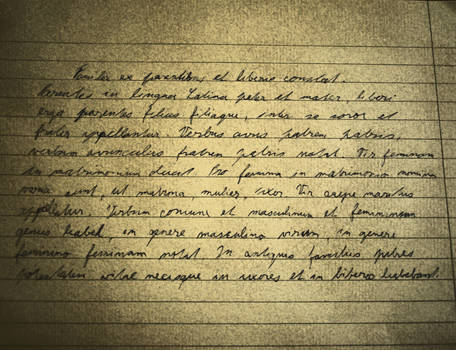 Familia ex parentibus et liberis constat.
Parentes in lingua Latina pater et mater, liberi
erga parentes filius filiaque, inter se soror et
frater appellantur. Verbum avus patrem patris,
verbum avunculus fratrem matris notat. Vir feminam
in matrimonium ducit. Pro femina in matrimonio nomina
varia sunt, ut matrona, mulier, uxor. Vir saepe maritus
appellatur. Verbum coniunx et masculinum et femininum
genus habet, in genere masculino virum, in genere
feminino feminam notat. In antiquis familiis patres
potestatem vitae necisque in uxores et in liberos habebant.